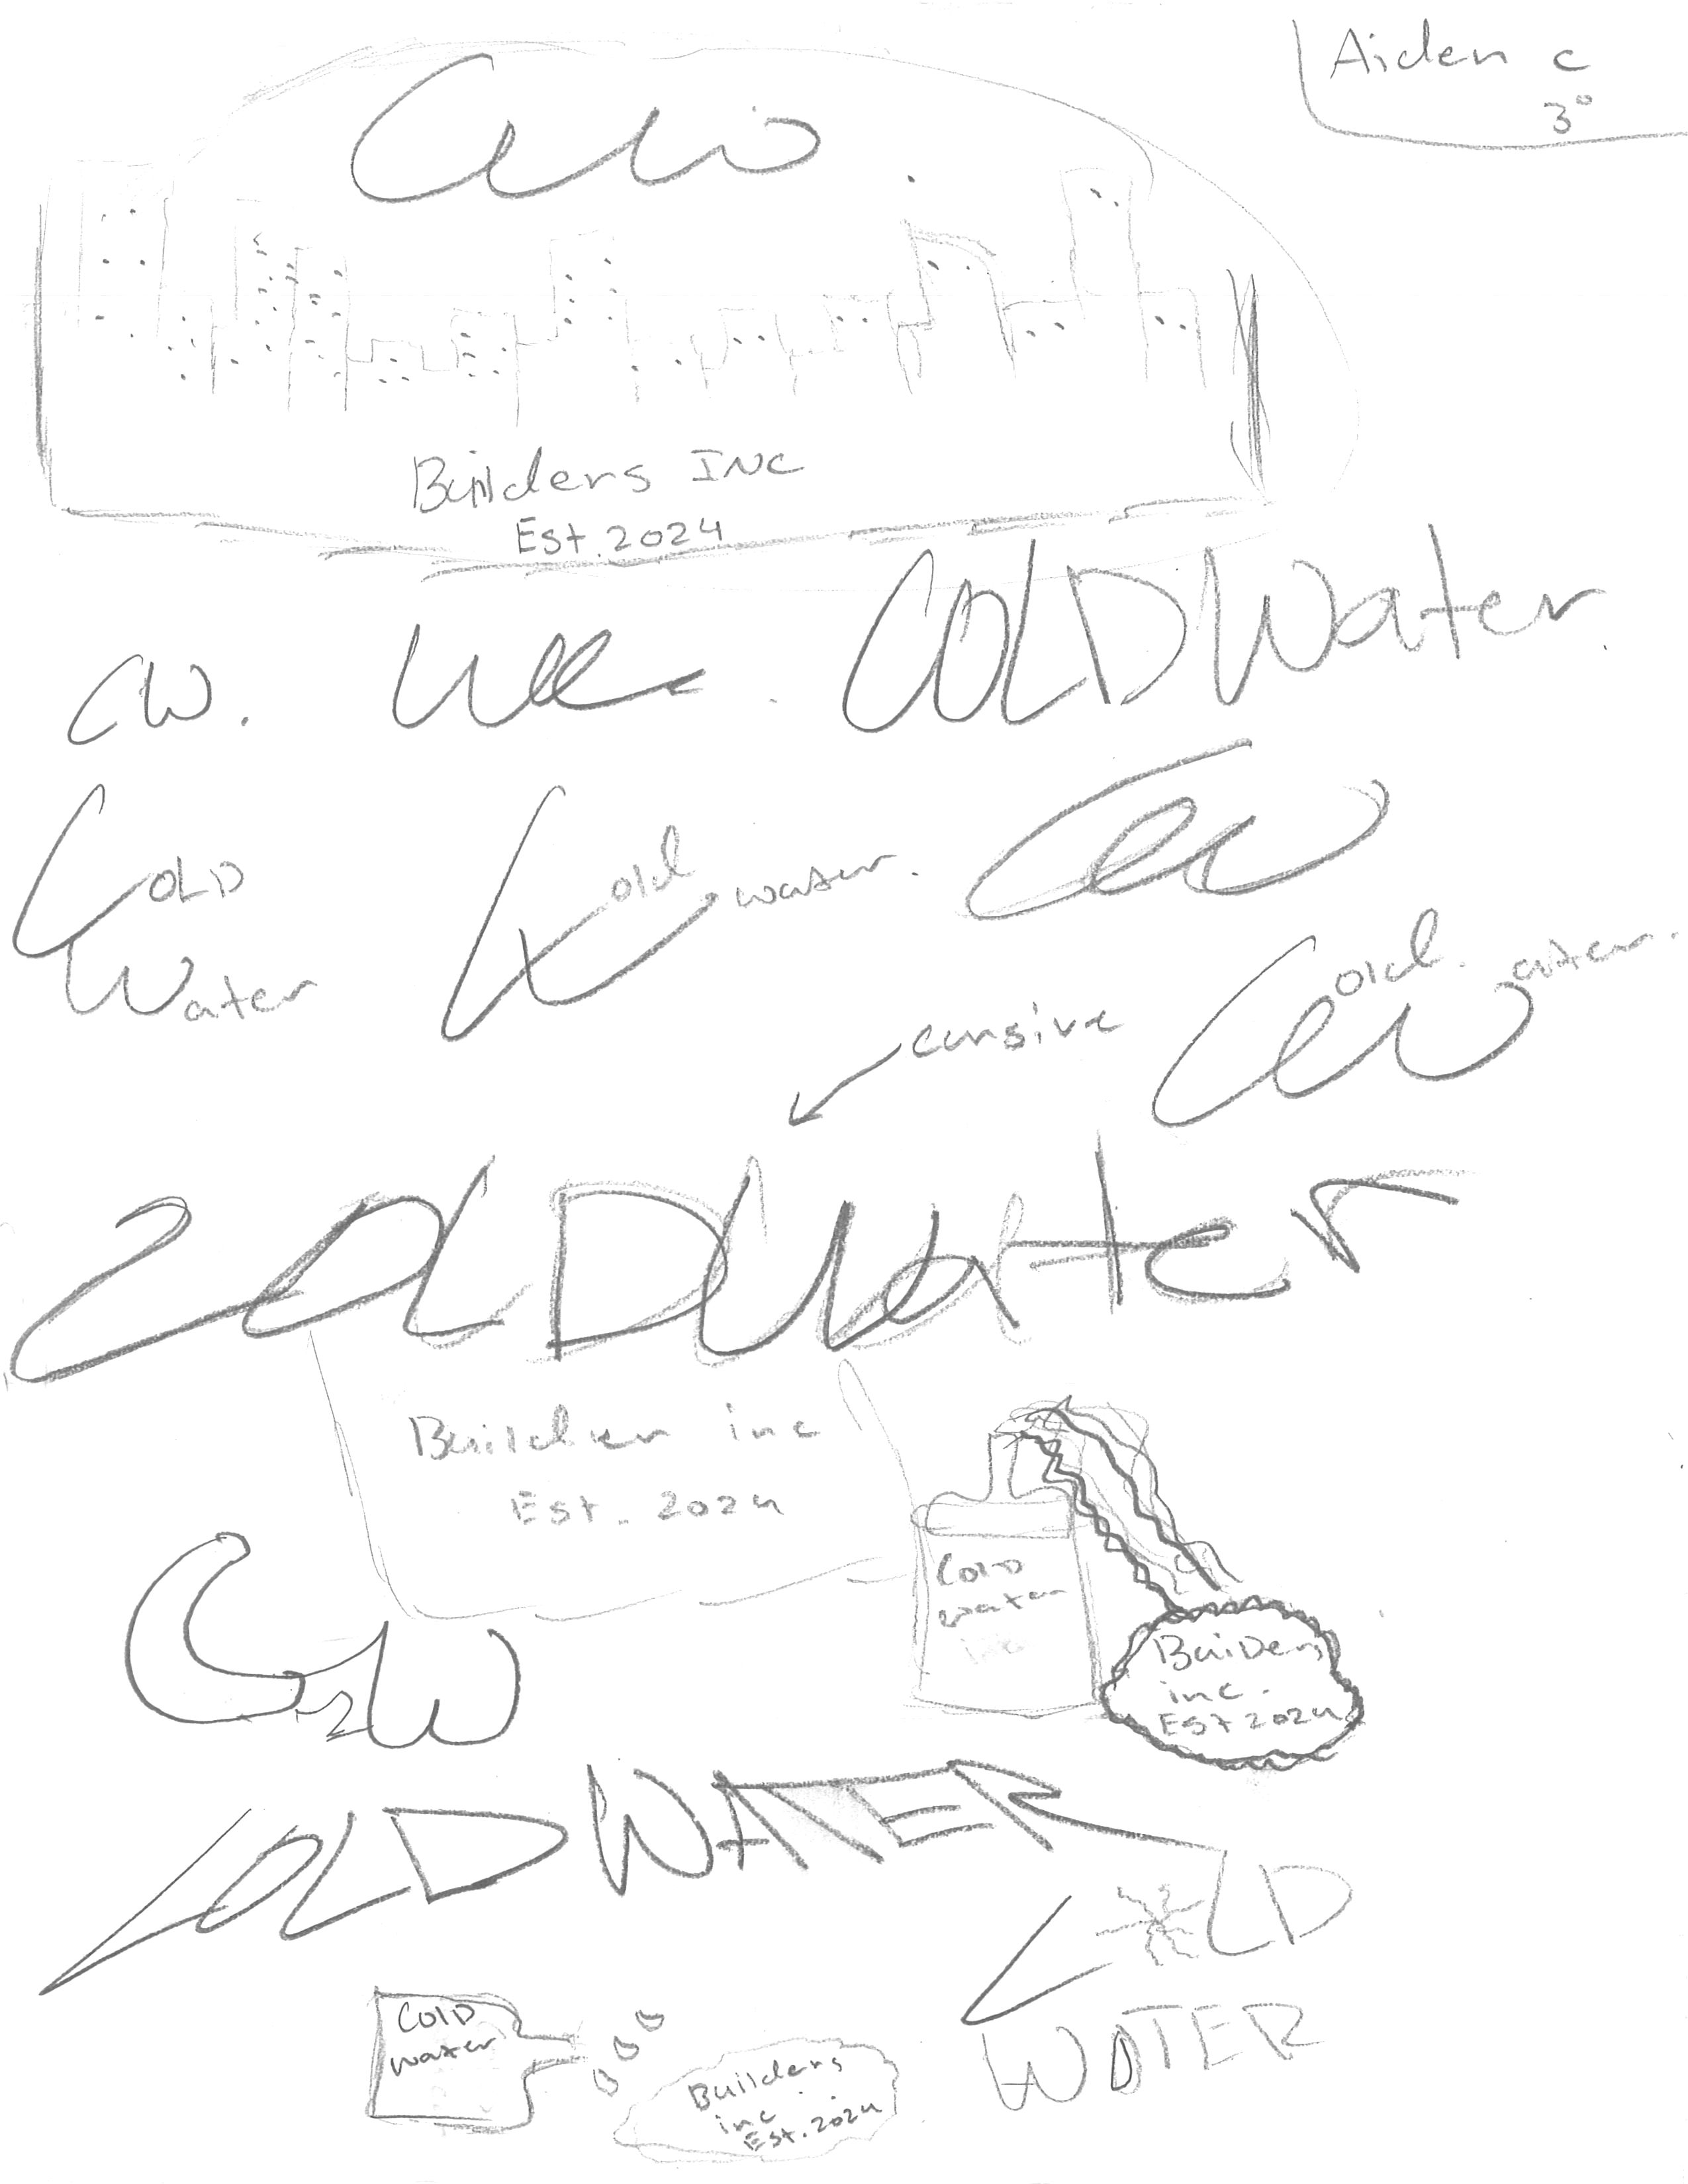 Aiden c
3°
CW.
Builders INC
Est. 2024
CW.
COLDWater.
COLD
Water
Cold water.
CW
Cold. water.
cursive
COLDWater
Builder inc
Est. 2024
Cold
water
Builders
inc.
Est 2024
C2W
COLDWATER
COLD
WATER
Cold
water
Builders
inc
Est. 2024